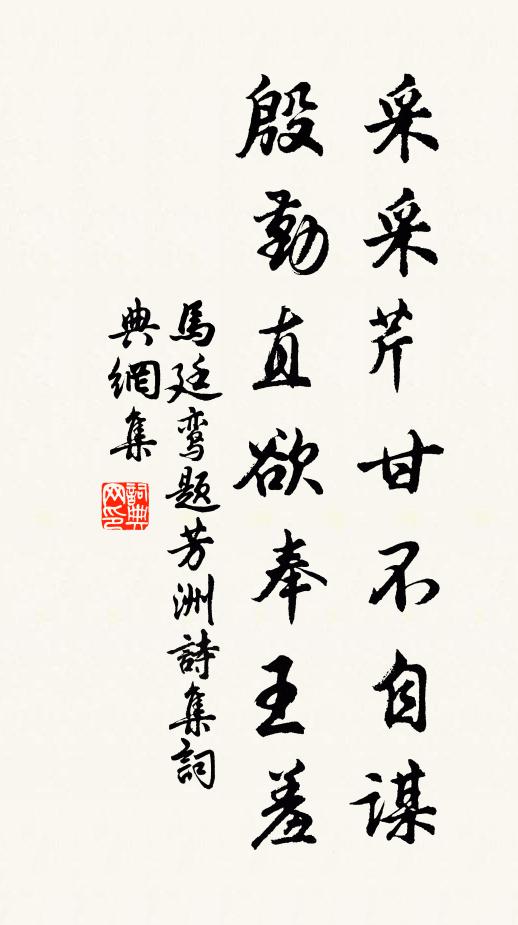 采采芹甘不自谋
殷勤直欲奉王羞
馬廷鸾题芳洲詩集詞
典網集
詞典
网印